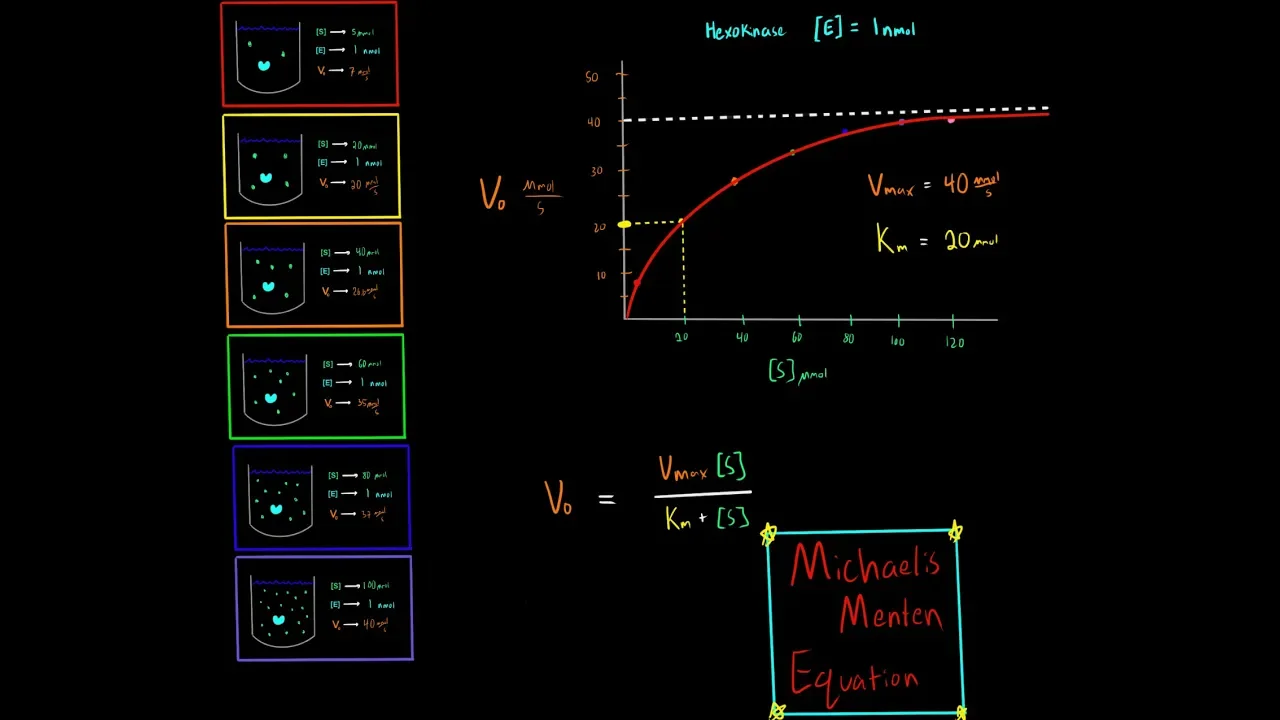 [S] → 5 μmol
[E] → 1 nmol
V₀ → 7 μmol/s
[S] → 20 μmol
[E] → 1 nmol
V₀ → 20 μmol/s
[S] → 40 μmol
[E] → 1 nmol
V₀ →
[S] → 60 μmol
[E] → 1 nmol
V₀ → 35 μmol/s
[S] → 80 μmol
[E] → 1 nmol
V₀ → 37 μmol/s
[S] → 100 μmol
[E] → 1 nmol
V₀ → 40 μmol/s
Hexokinase [E] = 1 nmol
50
40
30
20
10
V₀ μmol/s
20 40 60 80 100 120
[S] μmol
Vmax = 40 μmol/s
Km = 20 μmol
V₀ = Vmax [S] / Km + [S]
Michaelis
Menten
Equation